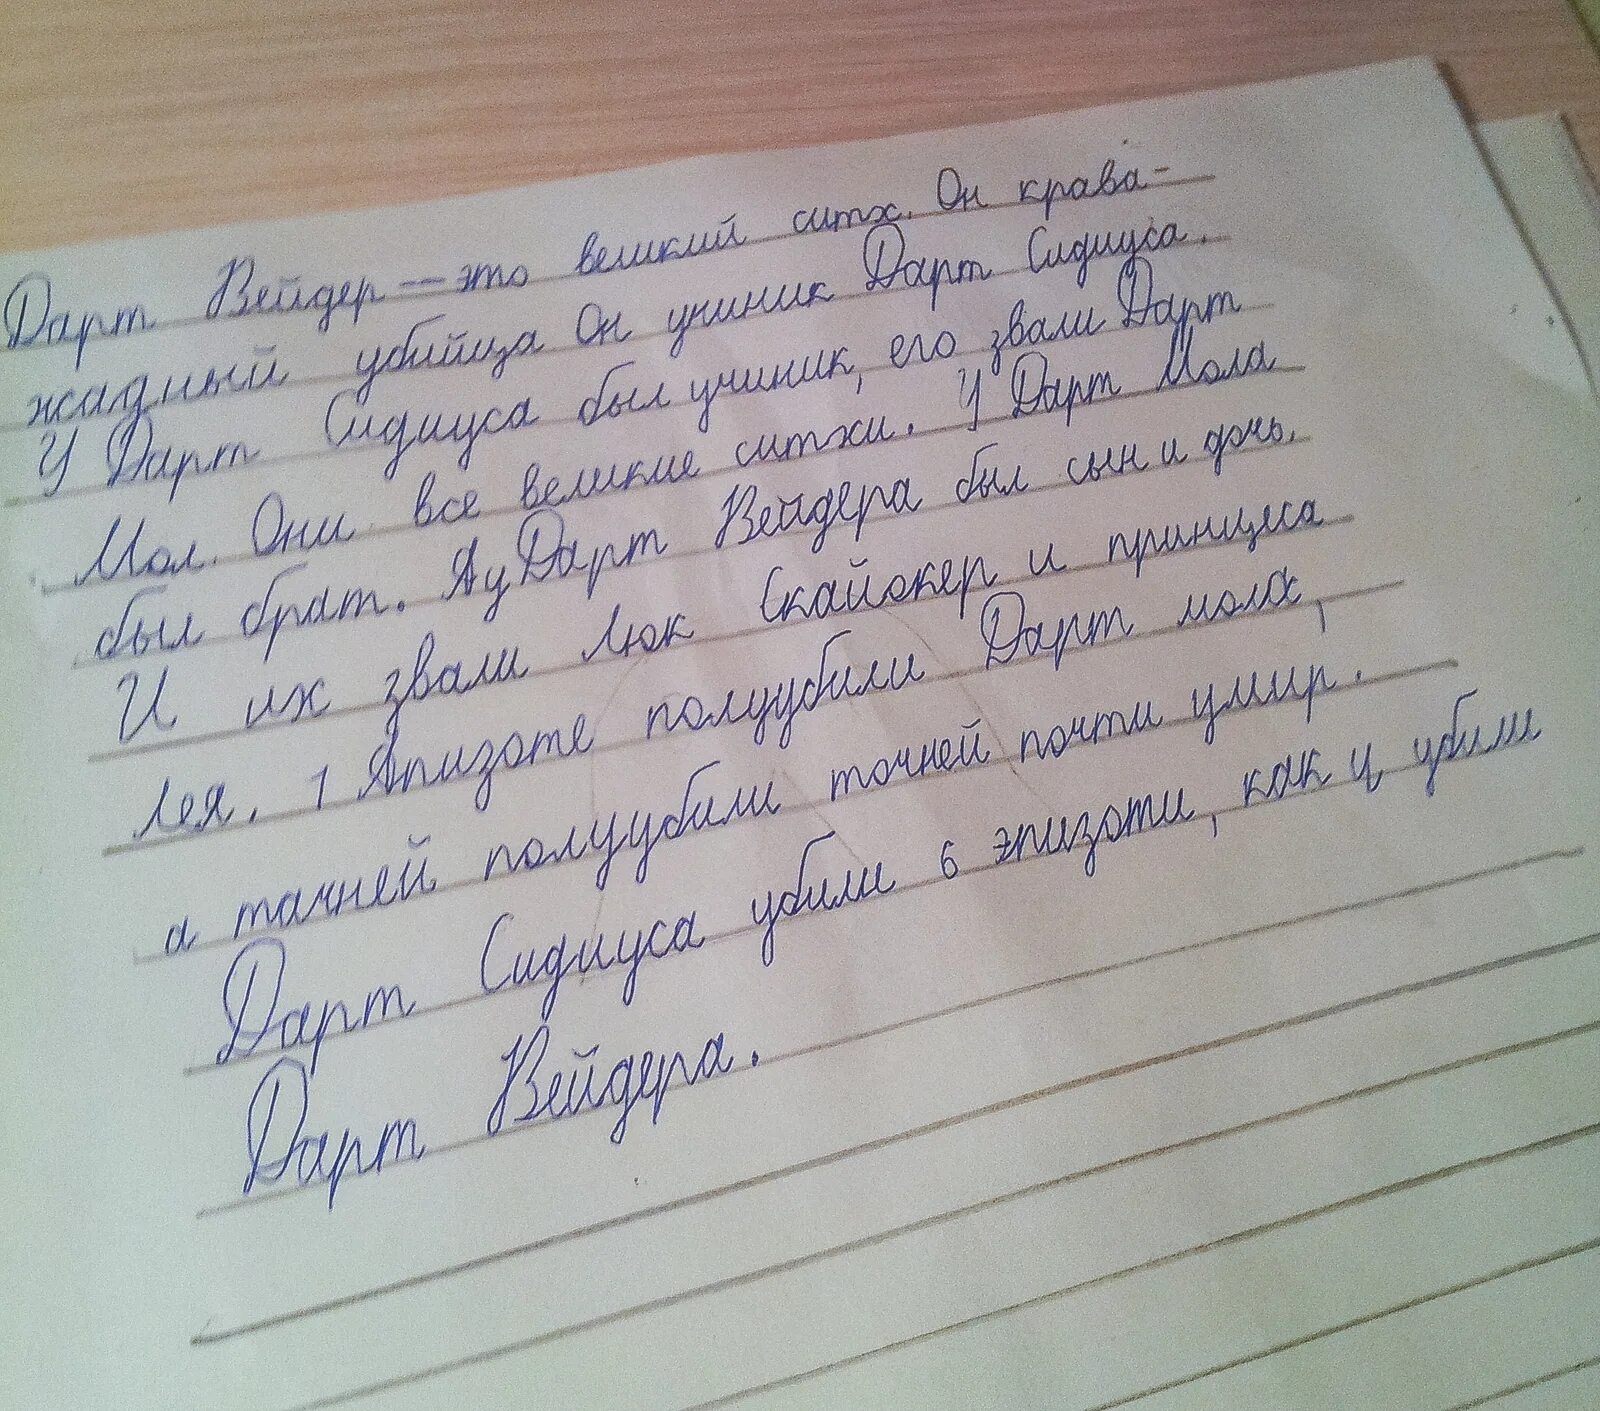 Дарт Вейдер — это великий ситх. Он крава-
жадный убийца Он учиник Дарт Сидиуса.
У Дарт Сидиуса был учиник, его звали Дарт
Мол. Они все великие ситхи. У Дарт Мола
был брат. Ау Дарт Вейдера был сын и дочь.
И их звали Люк Скайокер и принцеса
Лея. 1 Апизоте полуубили Дарт мола,
а тачней полуубили точней почти умир.
Дарт Сидиуса убили 6 эпизоти, как и убили
Дарт Вейдера.